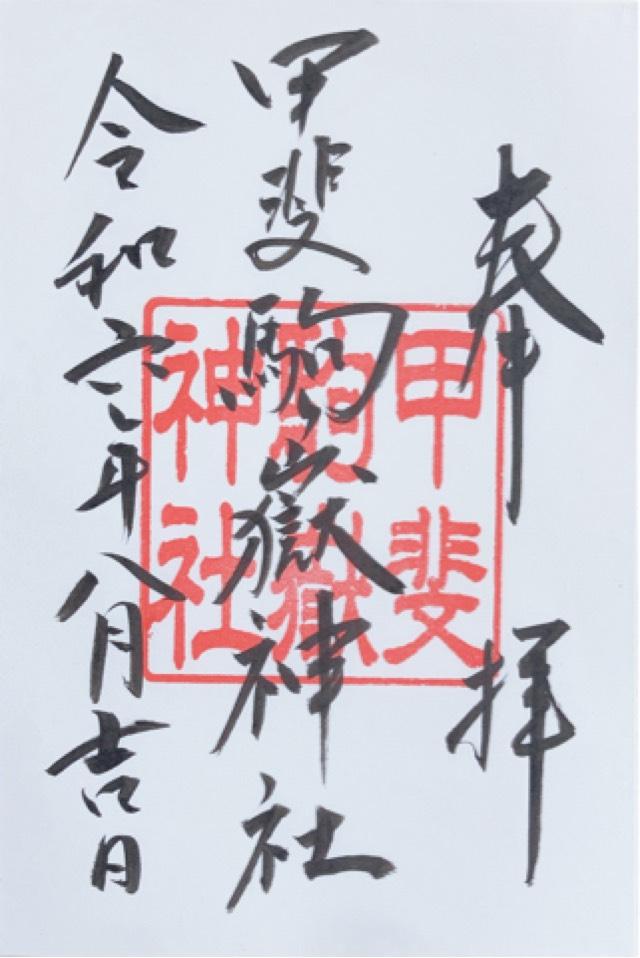 奉拝
甲斐駒嶽神社
令和六年八月吉日
甲斐
駒嶽
神社